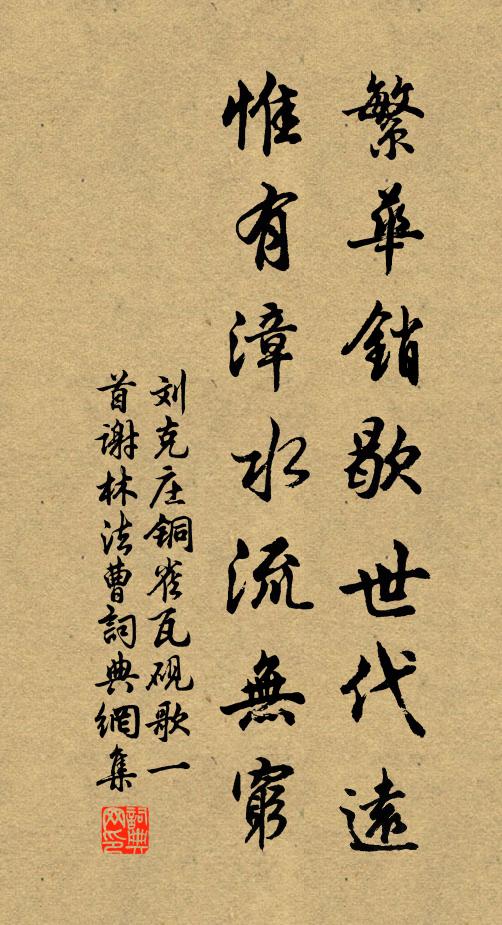 繁華銷歇世代遠
惟有漳水流無窮
刘克庄铜雀瓦砚歌一
首谢林法曹詞典網集
詞典
网印